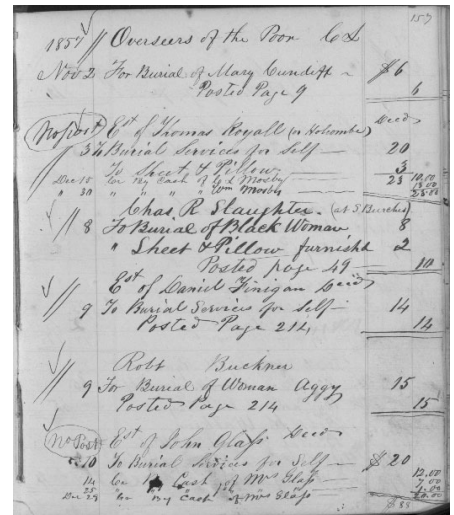 157
1857 // Overseers of the Poor C L
Nov 2 For Burial of Mary Cundiff ~ $6
Posted Page 9 6
No post Est of Thomas Royall (or Holcombe) Decd
3 To Burial Services for Self — 20
To Sheet & Pillow 3
Dec 15 Cr By Cash of Mosby 23 10.00
" 30 " " " " Wm Mosby 13.00
23.00
Chas. R Slaughter. (at S Burches)
// 8 To Burial of Black Woman 8
" Sheet & Pillow furnishd 2
Posted page 49 — 10
Est of Daniel Finigan Decd
// 9 To Burial Services for Self — 14
Posted Page 214 14
Robt Buckner
// 9 For Burial of Woman Aggy 15
Posted Page 214 15
No Post Est of John Glass Decd
10 To Burial Services for Self — $20
14 Cr By Cash of Mrs Glass 12.00
25 7.00
Dec 29 Cr By Cash of Mrs Glass 1.00
20.00
$ 88